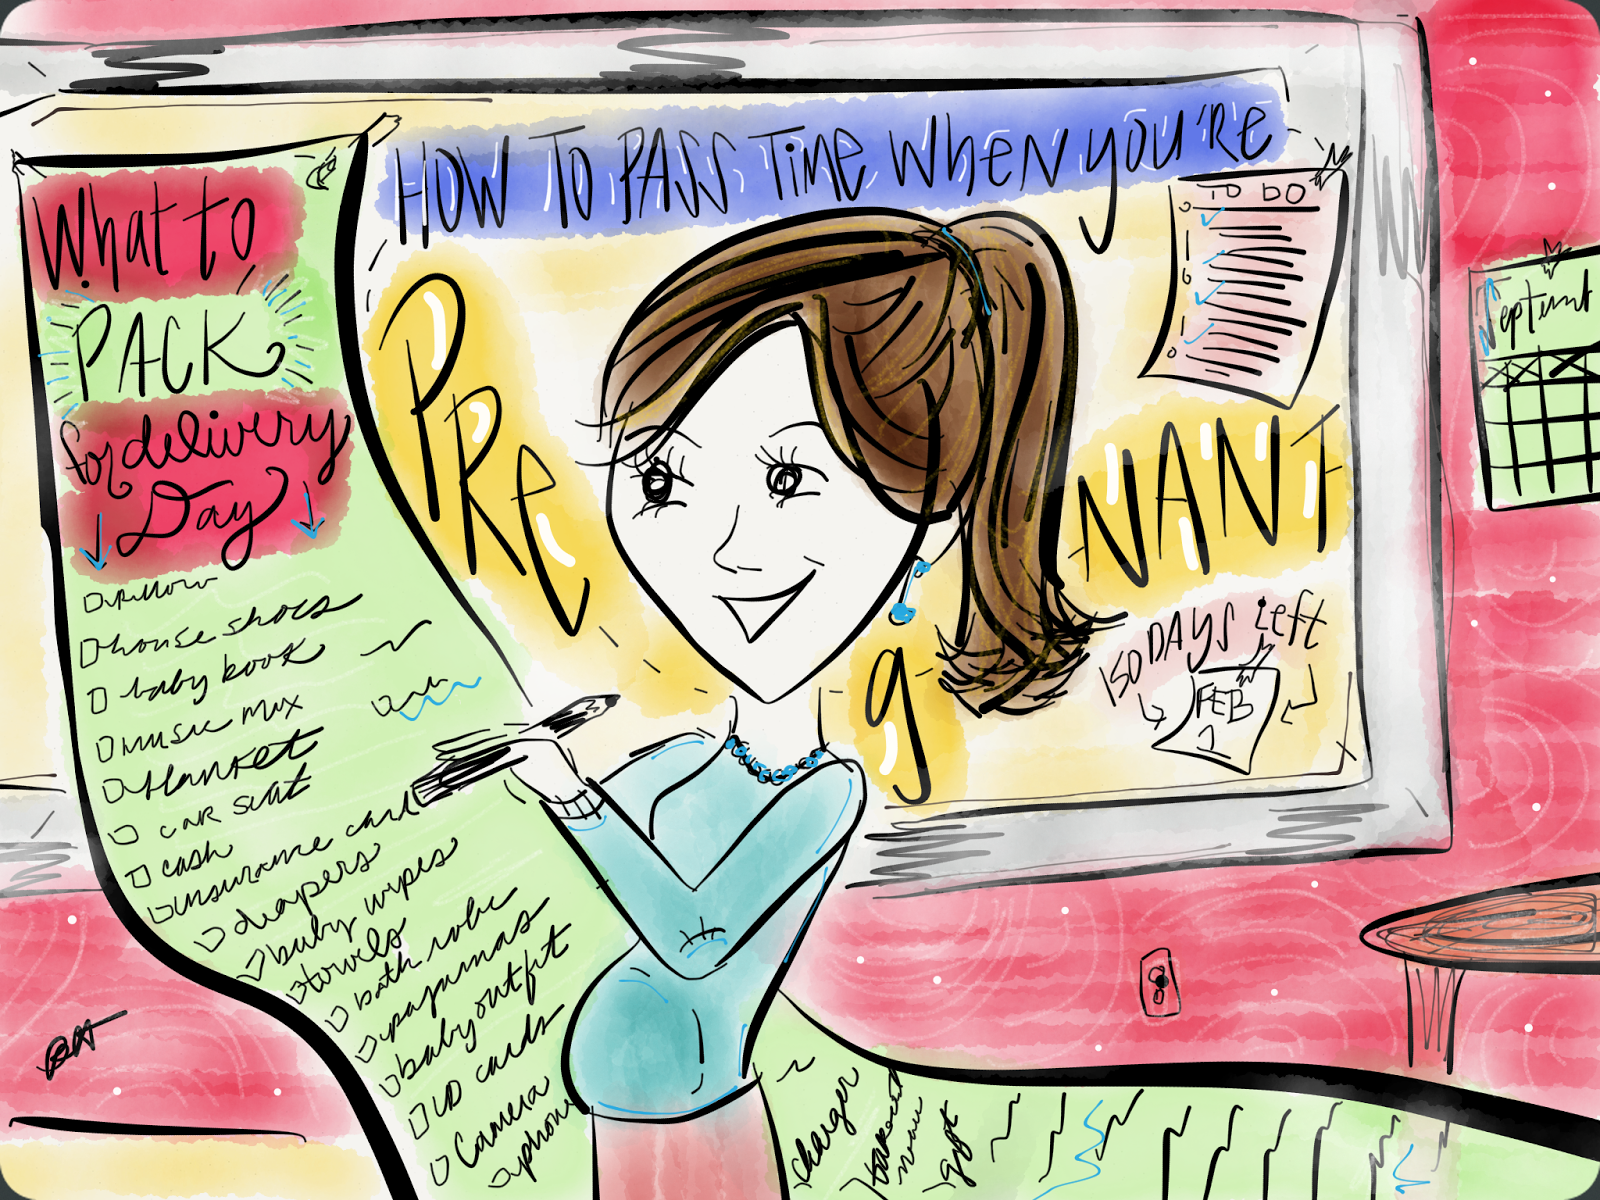 HOW TO PASS TIME WHEN YOU'RE
PREgNANT
What to
PACK
for delivery
Day
pillow
house shoes
baby book
music mix
blanket
car seat
cash
insurance card
diapers
baby wipes
towels
bath robe
pajamas
baby outfit
ID cards
Camera
phone
charger
gift
TO DO
150 DAYS left
FEB
1